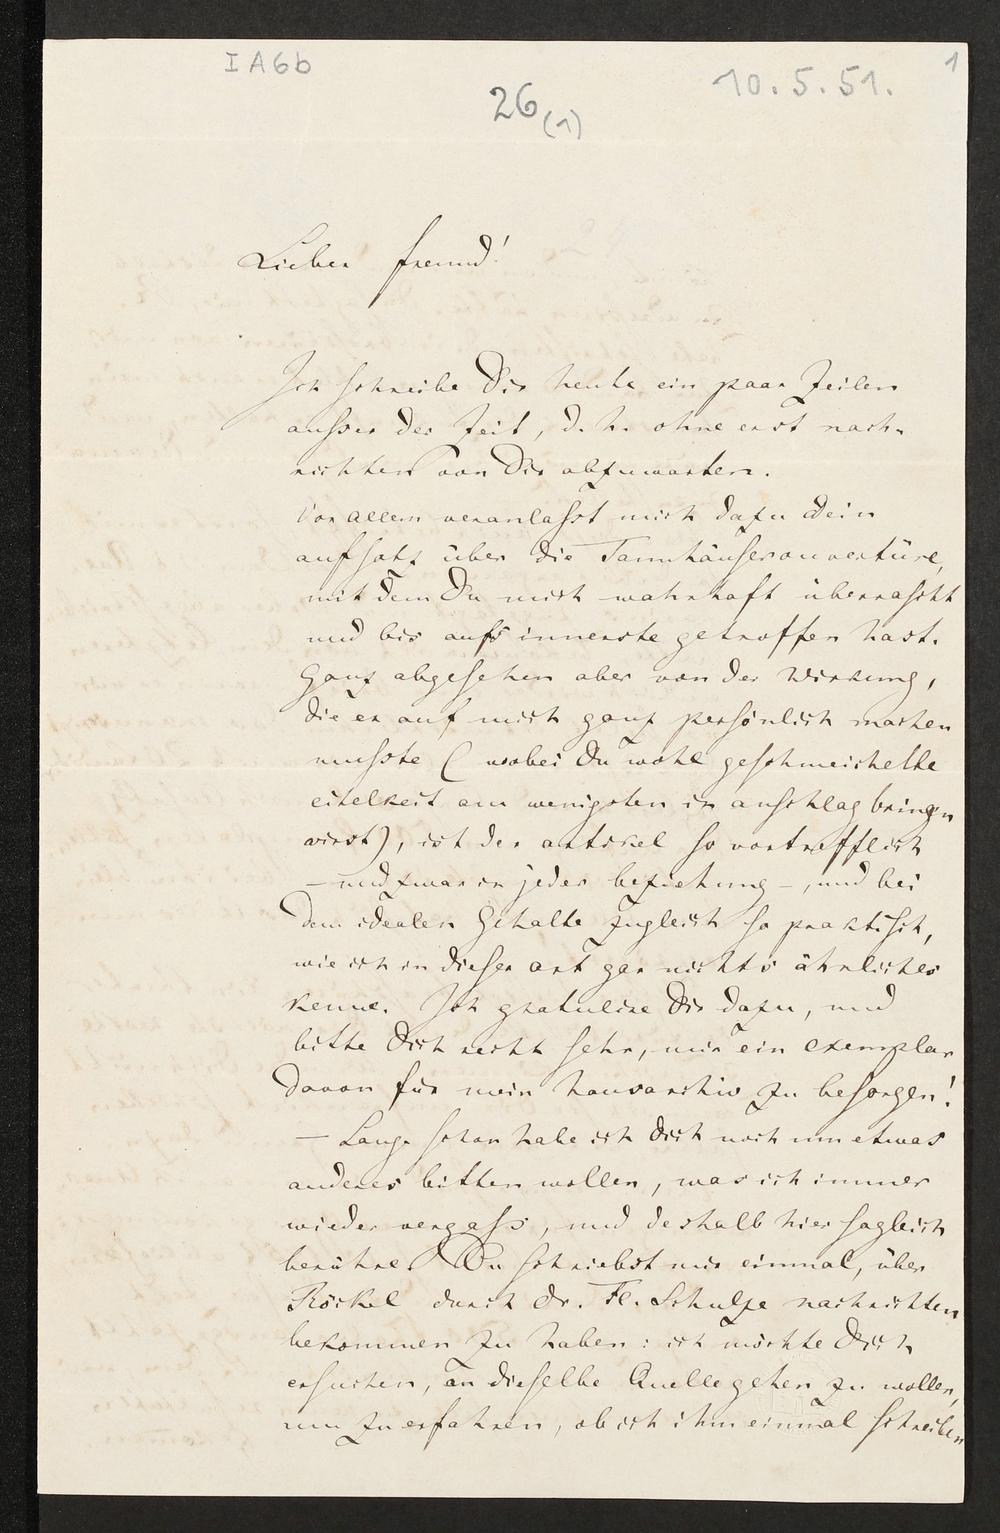 I A 6 b
10.5.51.
1
26 (1)
Lieber freund!
Ich schreibe Dir heute ein paar Zeilen
ausser der Zeit, d. h. ohne erst nach-
richten von Dir abzuwarten.
Vor allem veranlasst mich dazu Dein
aufsatz über die Tannhäuserouvertüre,
mit dem Du mich wahrhaft überrascht
und bis aufs innerste getroffen hast.
Ganz abgesehen aber von der Wirkung,
die er auf mich ganz persönlich machen
musste (wobei Du wohl geschmeichelte
eitelkeit am wenigsten in anschlag bringen
wirst), ist der artikel so vortrefflich
– und zwar in jeder beziehung –, und bei
dem idealen Gehalte zugleich so praktisch,
wie ich in dieser art gar nichts ähnliches
kenne. Ich gratulire Dir dazu, und
bitte Dich recht sehr, mir ein exemplar
davon für mein hausarchiv zu besorgen!
– Lange schon habe ich Dich noch um etwas
anderes bitten wollen, was ich immer
wieder vergass, und deshalb hier sogleich
berühre. Du schriebst mir einmal, über
Röckel durch Dr. Fl. Schulze nachrichten
bekommen zu haben: ich möchte Dich
ersuchen, an dieselbe Quelle gehen zu wollen,
um zu erfahren, ob ich ihm einmal schreiben